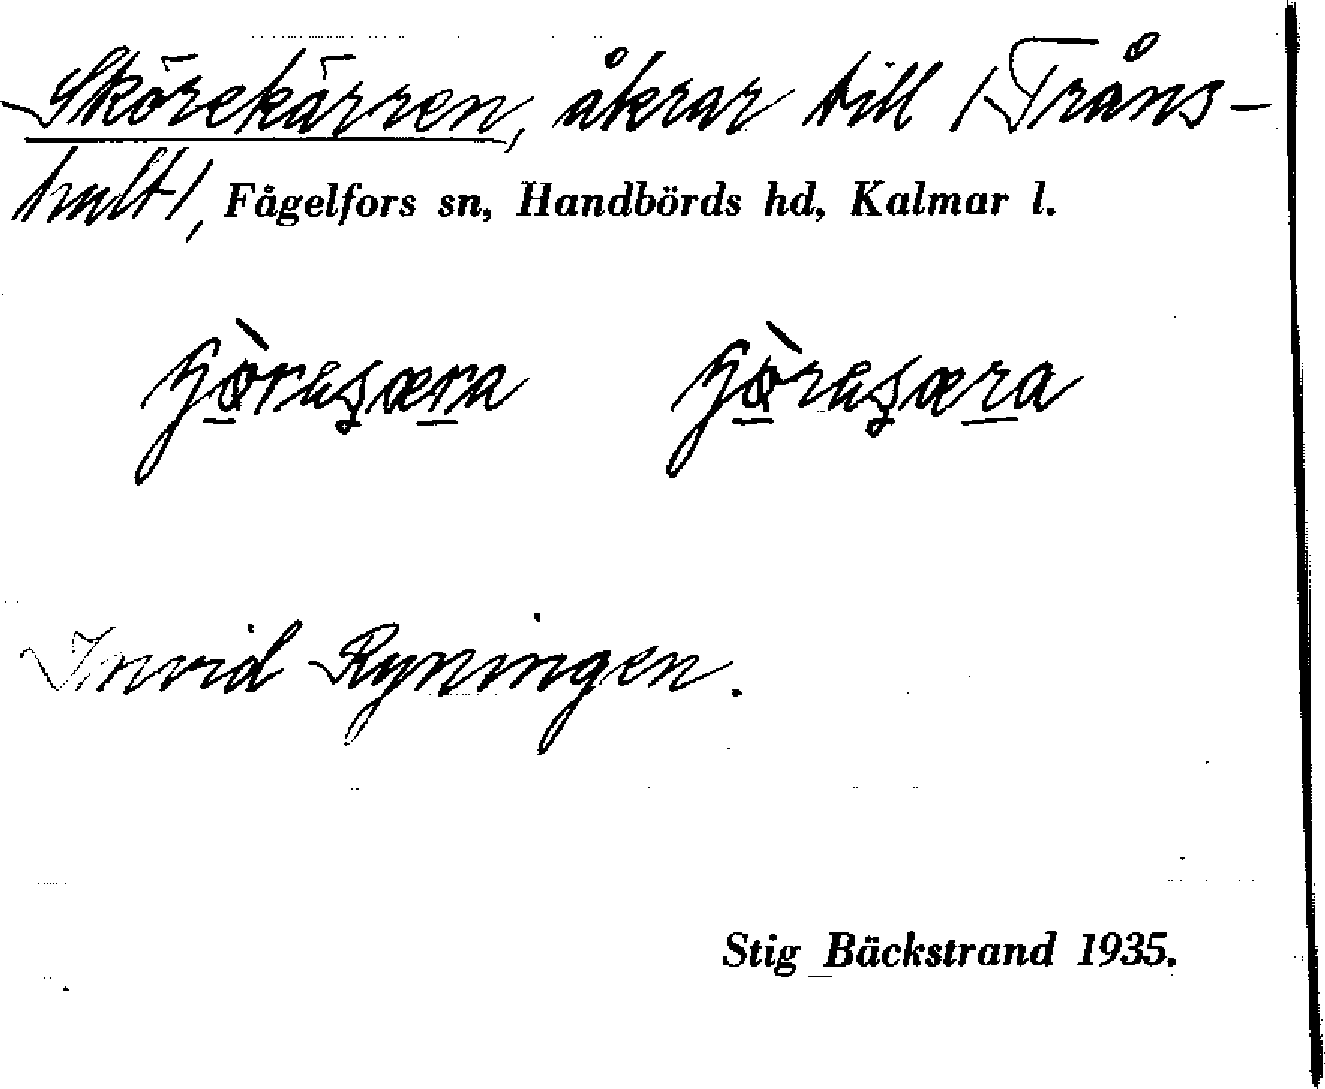 Skörekärren, åkrar till /Tråns-
hult/, Fågelfors sn, Handbörds hd, Kalmar l.
Invid Ryningen.
Stig Bäckstrand 1935.